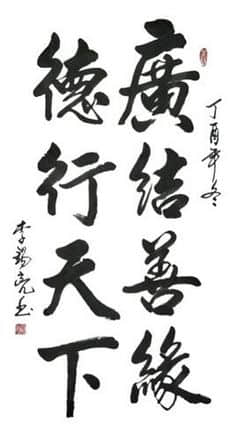 丁酉年冬
廣結善緣
德行天下
李錫亮书